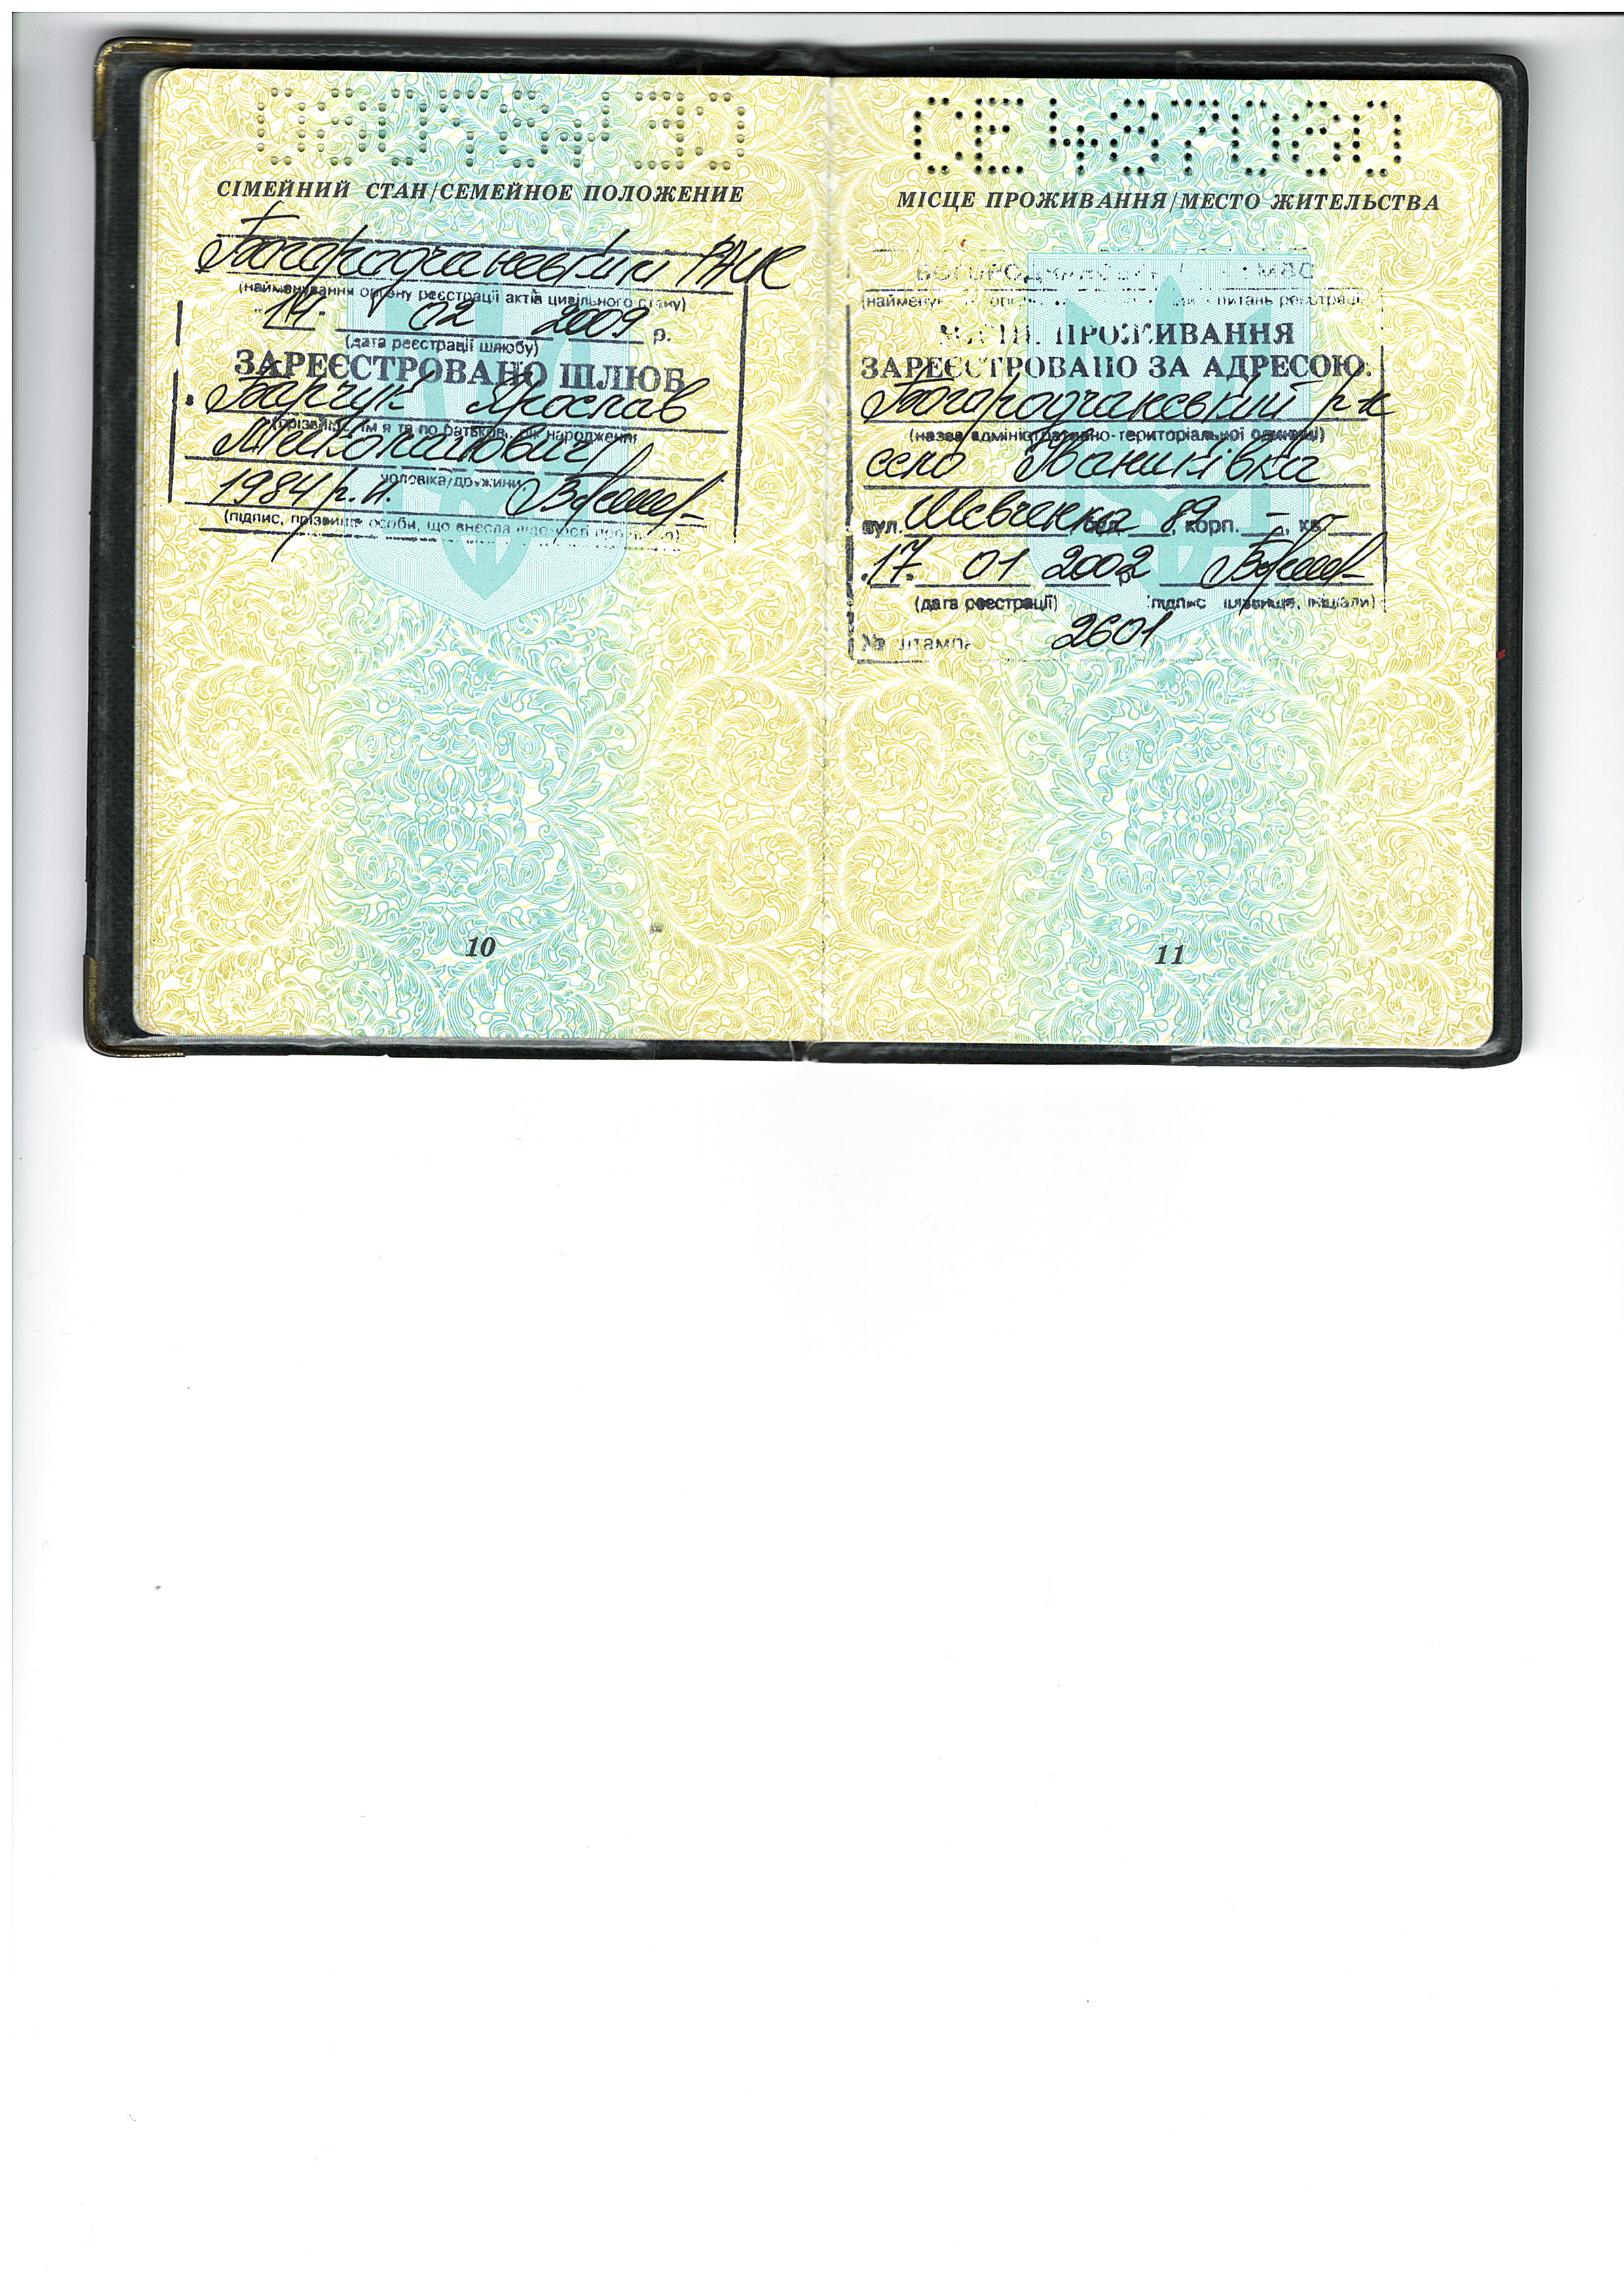 СІМЕЙНИЙ СТАН/СЕМЕЙНОЕ ПОЛОЖЕНИЕ
Богородчанським РАЦС
(найменування органу реєстрації актів цивільного стану)
"14" 02 2009 р.
(дата реєстрації шлюбу)
ЗАРЕЄСТРОВАНО ШЛЮБ
Ярослав
(прізвище, ім'я та по батькові, рік народження
Миколайович
чоловіка/дружини
1984 р.н.
(підпис, прізвище особи, що внесла відомості про
10
СЕ
МІСЦЕ ПРОЖИВАННЯ/МЕСТО ЖИТЕЛЬСТВА
МІСЦЕ ПРОЖИВАННЯ
ЗАРЕЄСТРОВАНО ЗА АДРЕСОЮ:
Богородчанський р-н
(назва адміністративно-територіальної одиниці)
село Іваниківка
вул. Шевченка, буд. 89, корп. – , кв. –
"17" 01 2002 р.
(дата реєстрації) (підпис, прізвище, ініціали)
№ штампа 2601
11